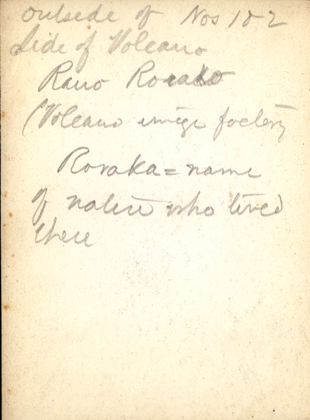 outside of Nos 1 & 2
Side of Volcano
Rano Rorako
(Volcano image factory
Roraka = name
of native who lived
there